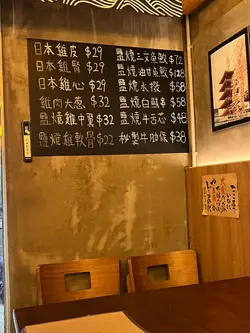 日本雞皮 $29
日本雞腎 $29
日本雞心 $29
雞肉大葱 $32
鹽燒雞中翼 $32
鹽燒雞軟骨 $22
鹽燒三文魚鮫 $72
鹽燒油甘魚鮫 $128
鹽燒水魷 $58
鹽燒白鱔串 $58
鹽燒牛舌芯 $48
秘製牛肋條 $38